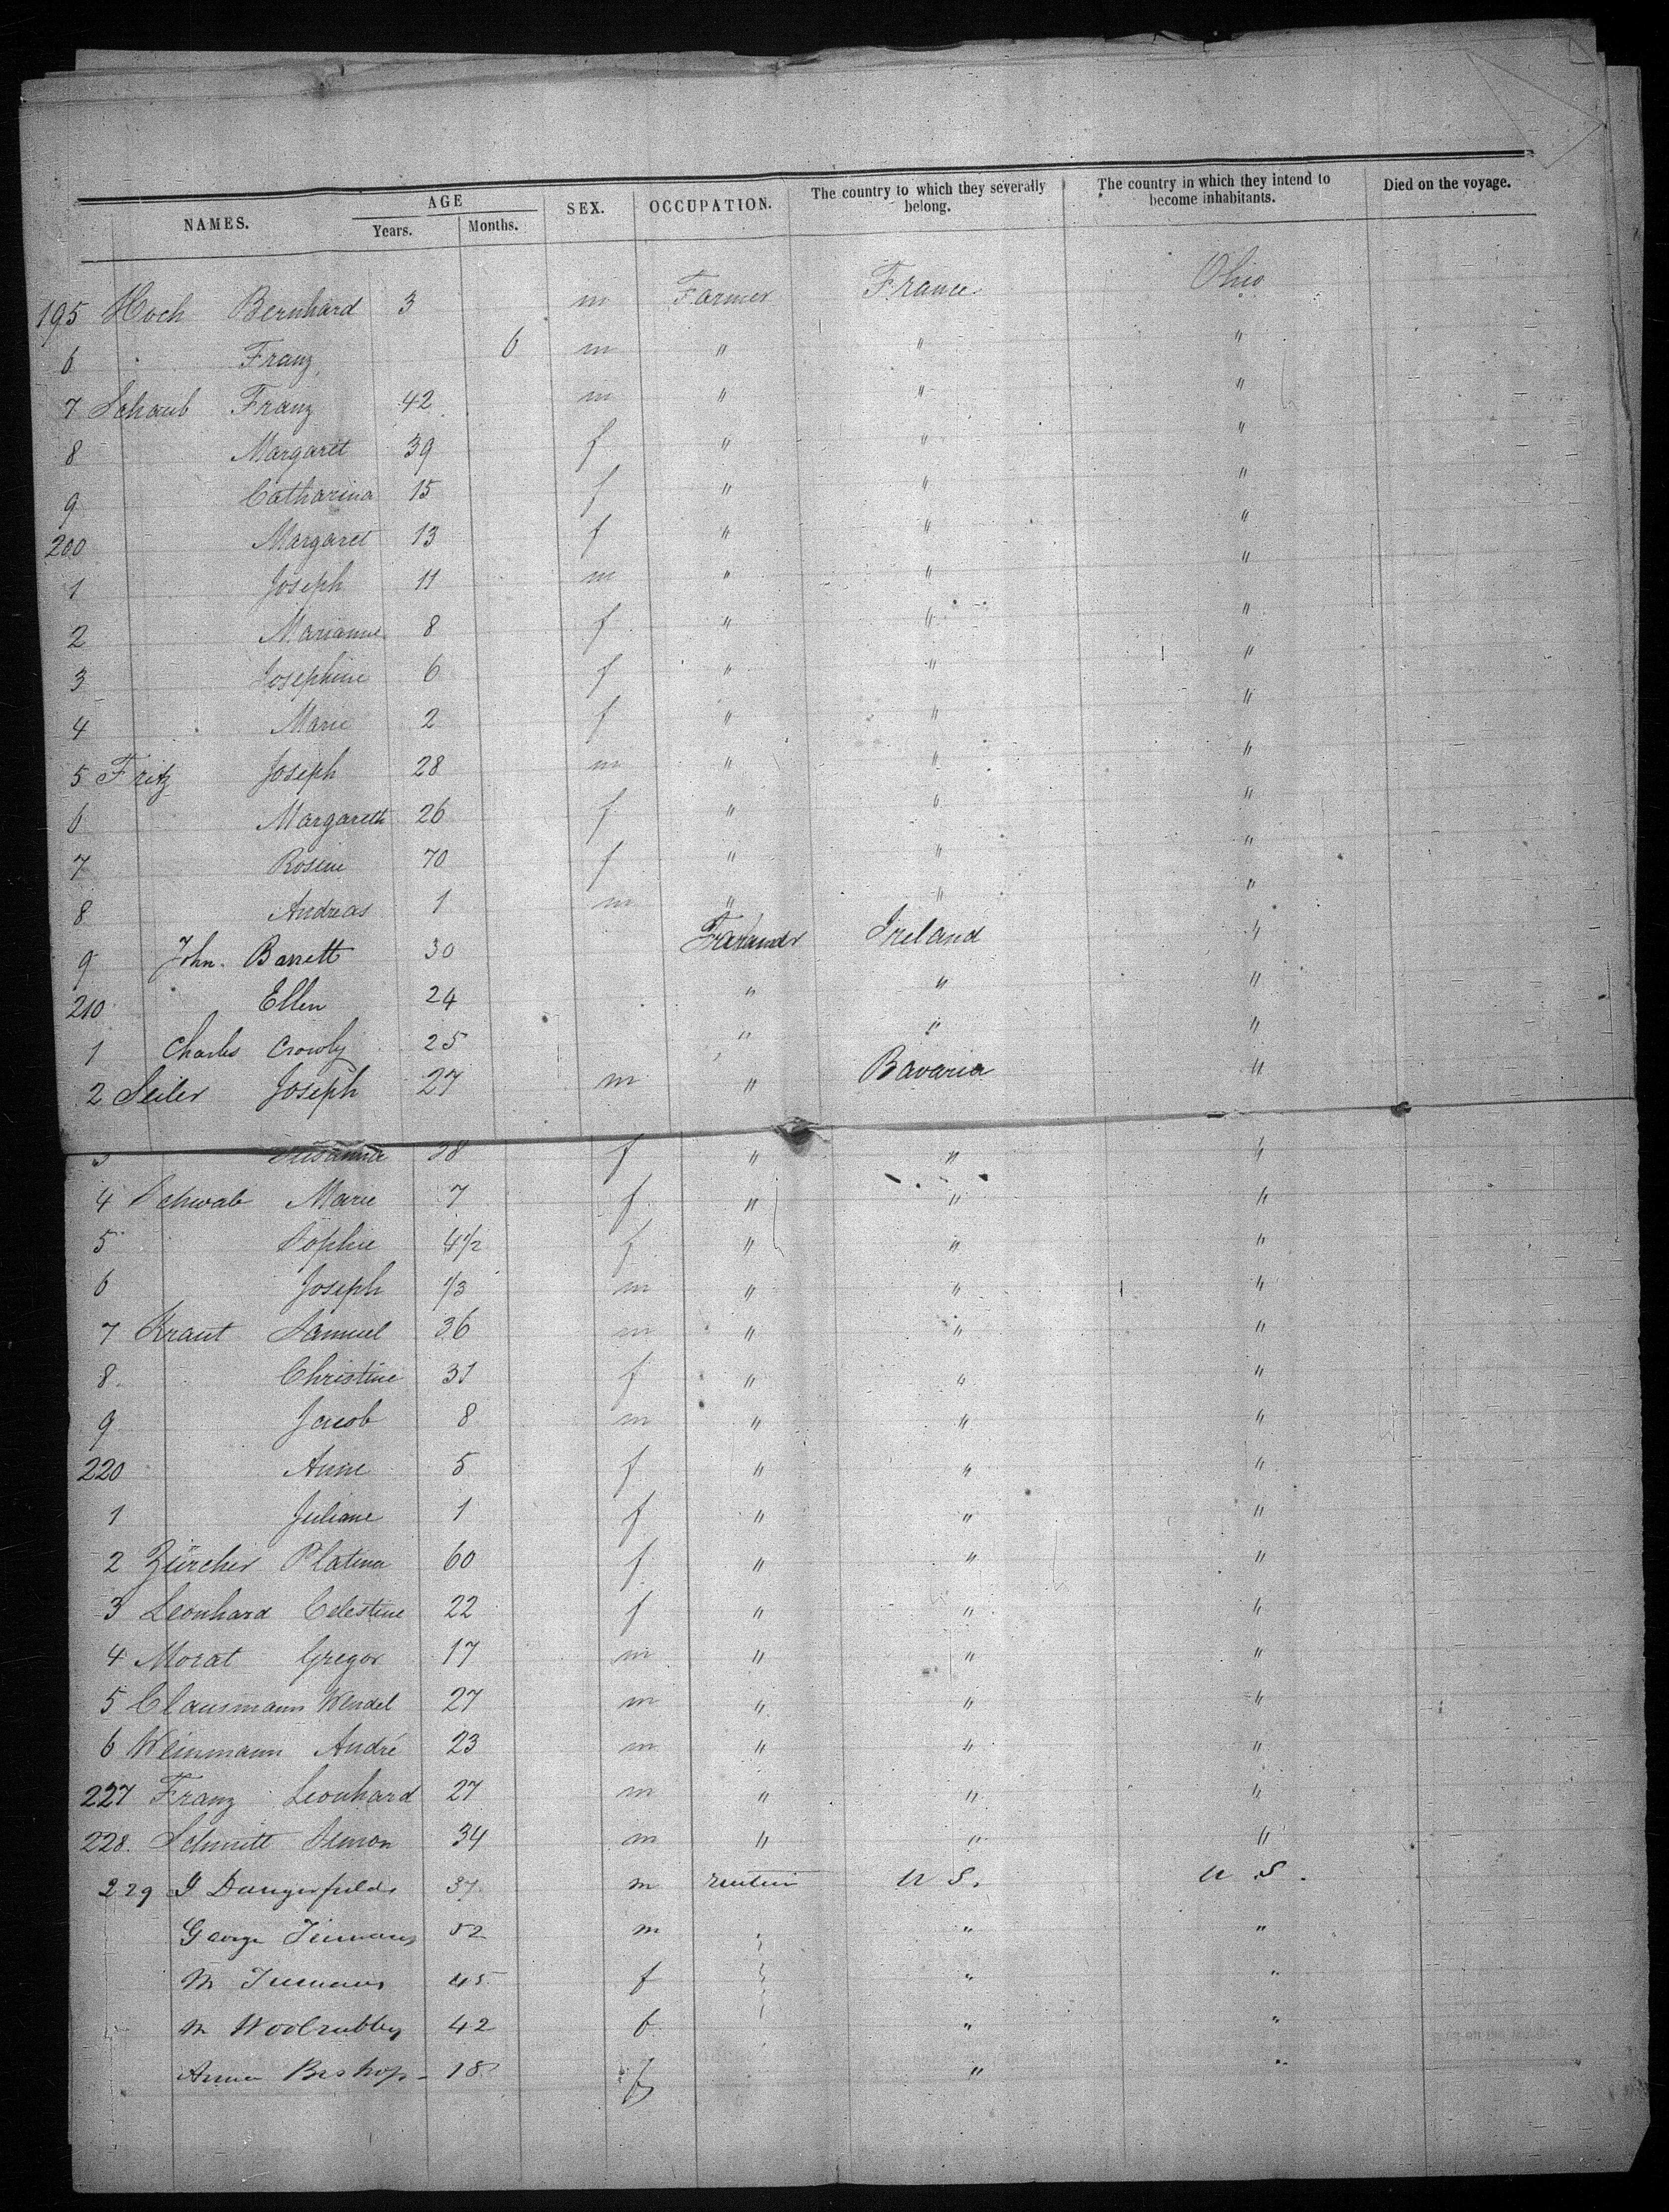 NAMES. AGE Years. Months. SEX. OCCUPATION. The country to which they severally belong. The country in which they intend to become inhabitants. Died on the voyage.
195 Hoch Bernhard 3 m Farmer France Ohio
6 Franz 6 m " " "
7 Schaub Franz 42 m " " "
8 Margaret 39 f " " "
9 Catharina 15 f " " "
200 Margaret 13 f " " "
1 Joseph 11 m " " "
2 Marianne 8 f " " "
3 Josephine 6 f " " "
4 Marie 2 f " " "
5 Fritz Joseph 28 m " " "
6 Margareth 26 f " " "
7 Rosine 70 f " " "
8 Andreas 1 m " " "
9 John. Barrett 30 Ireland "
210 Ellen 24 " " "
1 Charles Crowly 25 " " "
2 Seiler Joseph 27 m " Bavaria "
3 28 f " " "
4 Schwab Marie 7 f " " "
5 Sophie 4 1/2 f " " "
6 Joseph 1/3 m " " "
7 Kraut Samuel 36 m " " "
8 Christine 31 f " " "
9 Jacob 8 m " " "
220 Anne 5 f " " "
1 Juliane 1 f " " "
2 Zürcher Platina 60 f " " "
3 Leonhard Celestine 22 f " " "
4 Morat Gregor 17 m " " "
5 Clausmann Wendel 27 m " " "
6 Weinmann André 23 m " " "
227 Franz Leonhard 27 m " " "
228. Schmitt Simon 34 m " " "
229 Dangerfield 37 m U S. U.S.
George 52 m " "
M 45 f " "
M 42 f " "
Anna Bishop 18 f " "